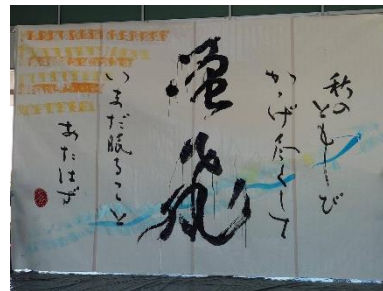 秋の
ともしび
かゝげ尽くして
螢飛
いまだ眠ること
あたはず